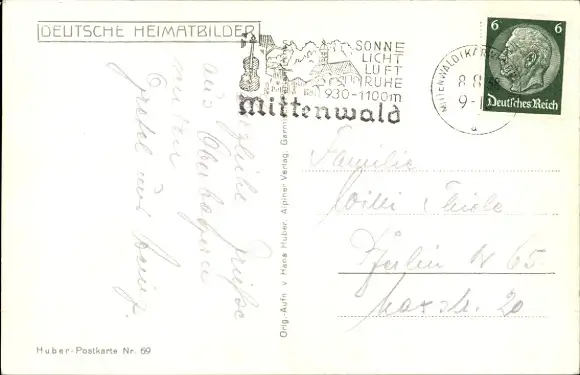 DEUTSCHE HEIMATBILDER
SONNE
LICHT
LUFT
RUHE
930-1100m
Mittenwald
MITTENWALD (KAR
8.8.
9-1
a
6 6
Deutsches Reich
Herzliche Grüße
aus Oberbayern
senden
Gretel und Heinz.
Orig.-Aufn. v. Hans Huber, Alpiner Verlag, Garmis
Familie
Willi Thiele
Berlin N 65
Maxstr. 20
Huber-Postkarte Nr. 69